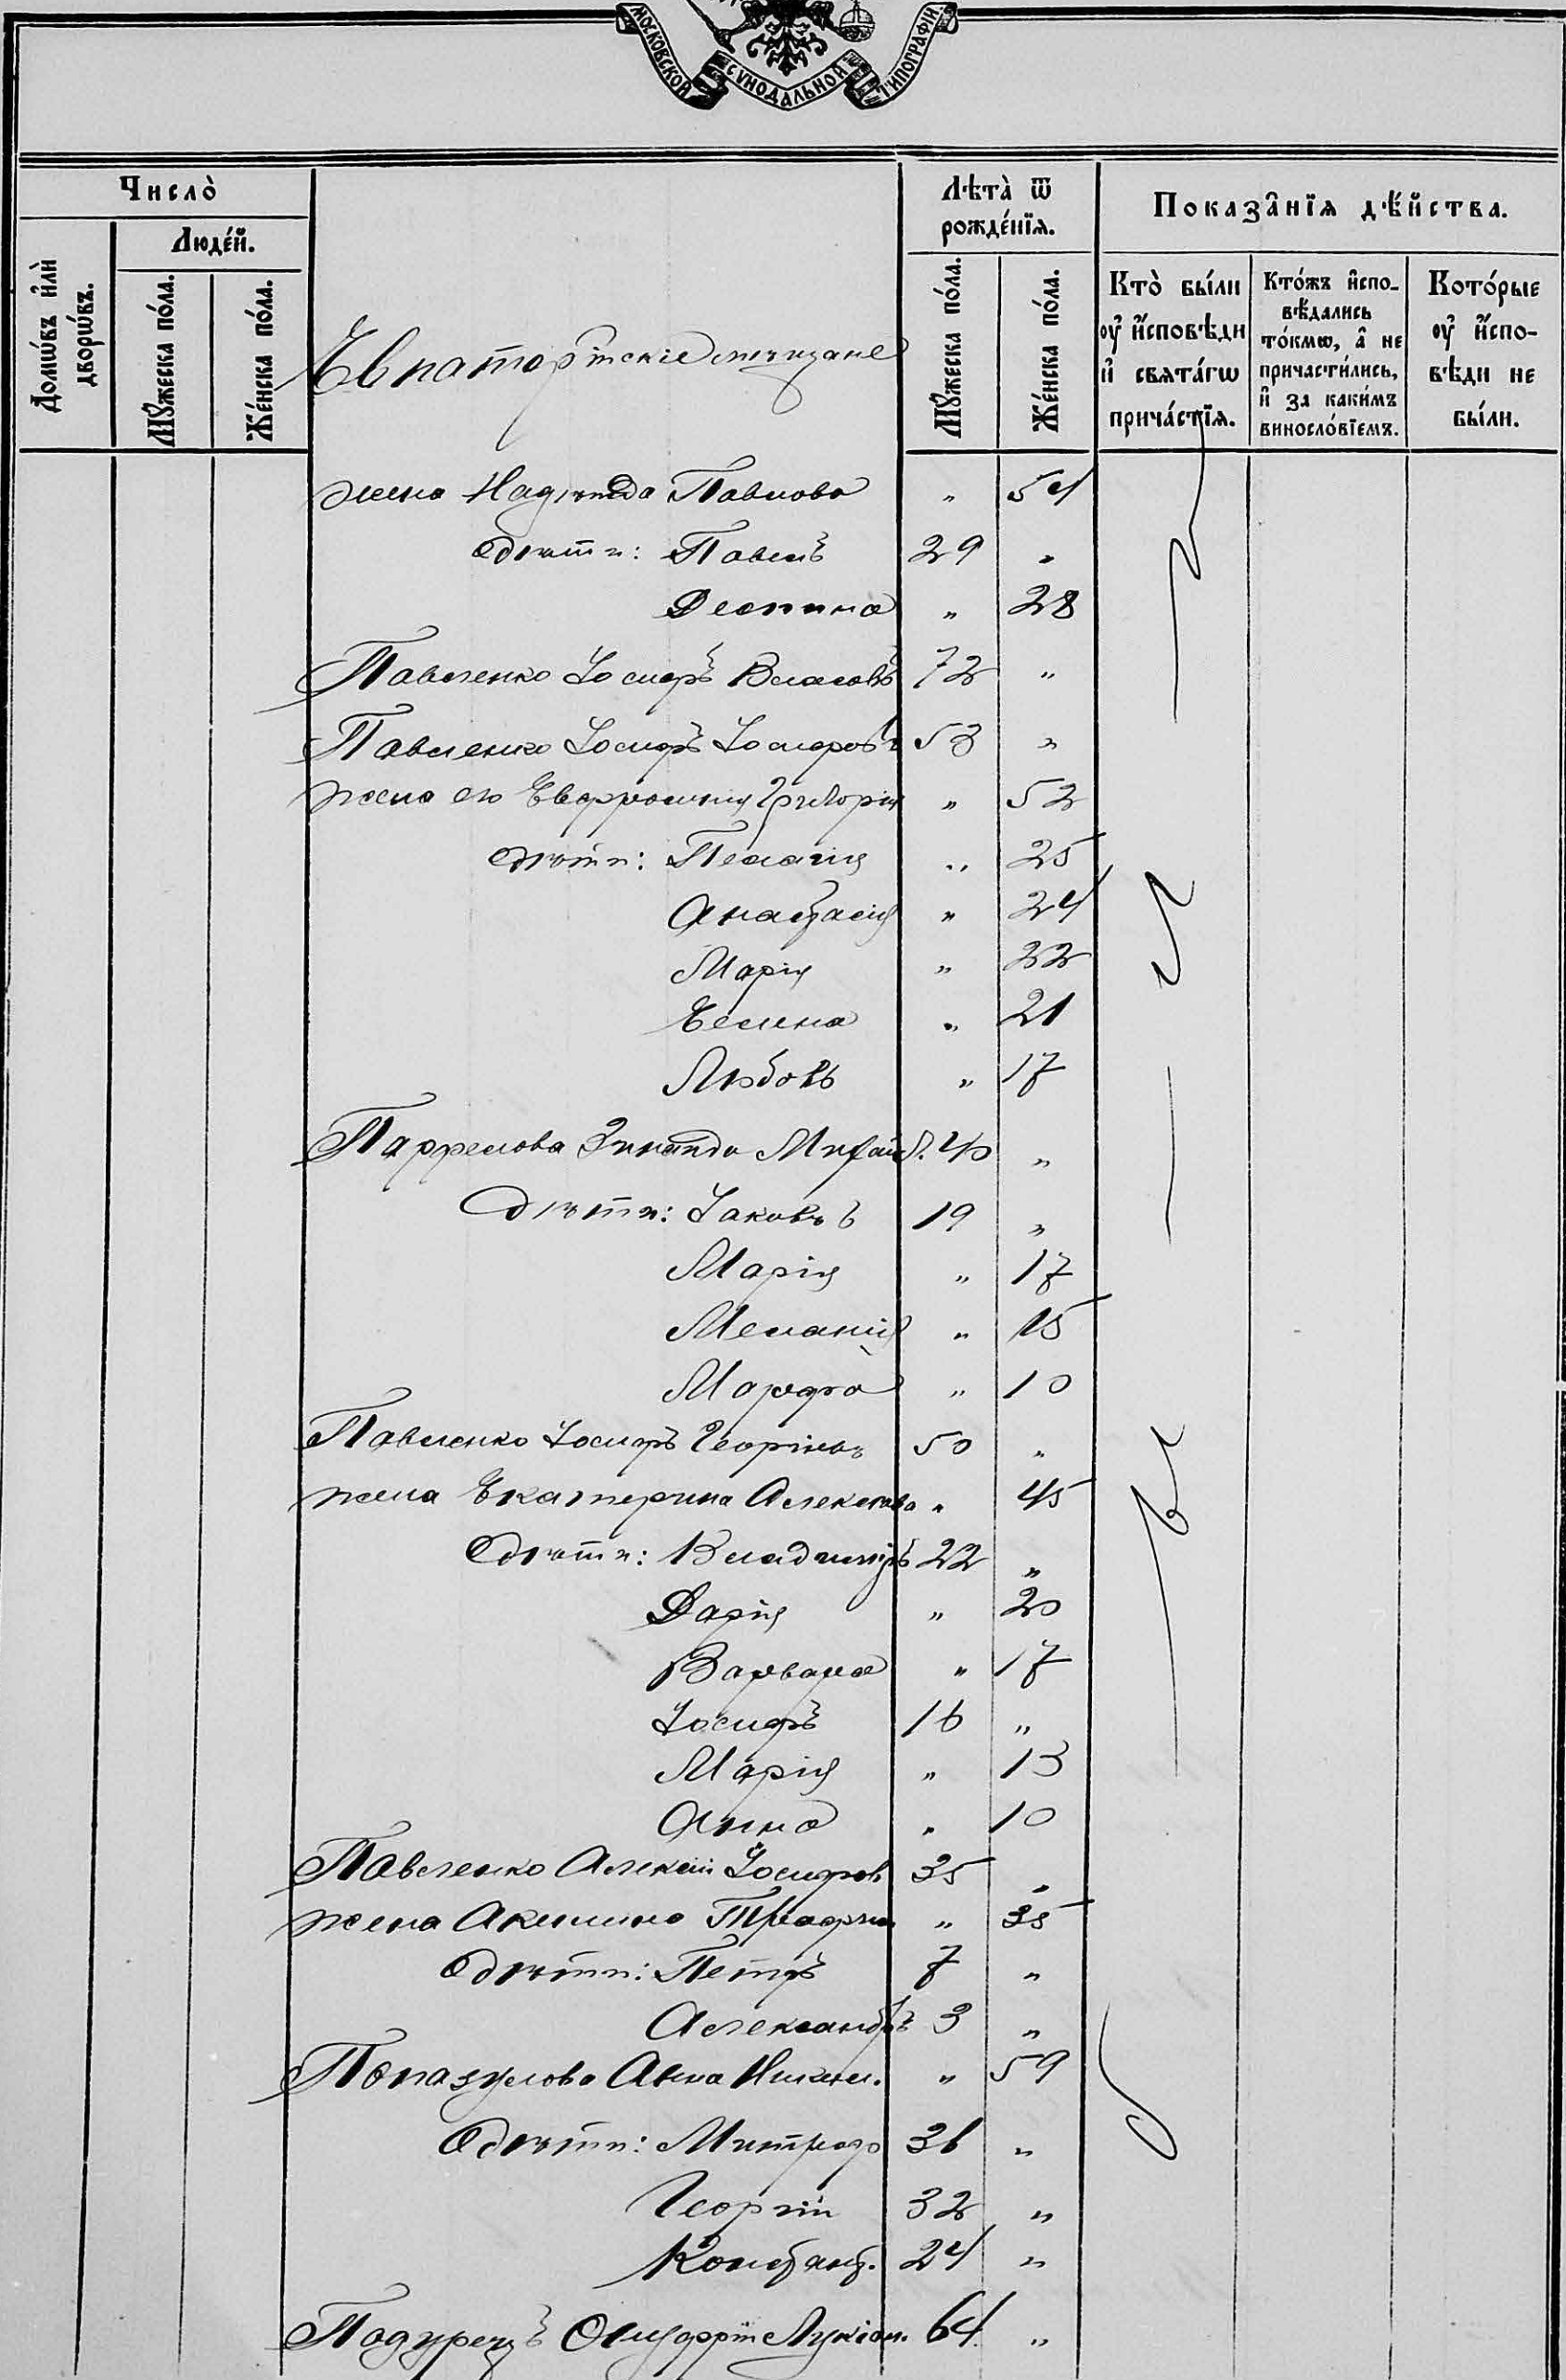 МОСКОВСКОЙ СѴНОДАЛЬНОЙ ТИПОГРАФІИ
Число̀
Людє́й.
Домѡ́въ и҆лѝ дворѡ́въ.
Мꙋ́жеска по́ла.
Же́нска по́ла.
Евпаторійскіе мѣщане
Лѣта̀ ѿ рожде́нїѧ.
Мꙋ́жеска по́ла.
Же́нска по́ла.
Показа̑нїѧ дѣ́йства.
Кто̀ бы́ли ᲂу҆ и҆сповѣди и҆ свѧта́гѡ прича́стїѧ.
Кто́жъ и҆сповѣдались то́кмѡ, а҆ не причасти́лись, и҆ за каки́мъ винослόвїемъ.
Кото́рые ᲂу҆ и҆сповѣди не бы́ли.
жена Надежда Павлова " 54
дѣти: Павелъ 29 "
Деспина " 28
Павленко Іосифъ Власовъ 72 "
Павленко Іосифъ Іосифовъ 53 "
жена его Евфросинія Григорія " 52
дѣти: Пелагія " 25
Анастасія " 24
Марія " 22
Елена " 21
Любовь " 17
Зинаида Михаил. 40 "
дѣти: Іаковъ 19 "
Марія " 17
Меланія " 15
Марфа " 10
Павленко Іосифъ Георгіевъ 50 "
жена Екатерина Алексѣева " 45
дѣти: Владиміръ 22 "
Дарія " 20
Варвара " 17
Іосифъ 16 "
Марія " 13
Анна " 10
Павленко Алексій Іосифов 35 "
жена Акилина " 35
дѣти: Петръ 7 "
Александръ 3 "
Попазулова Анна Никол. " 59
дѣти: Митроф 36 "
Георгій 32 "
Констант. 24 "
Онуфрій Лукіан. 64 "